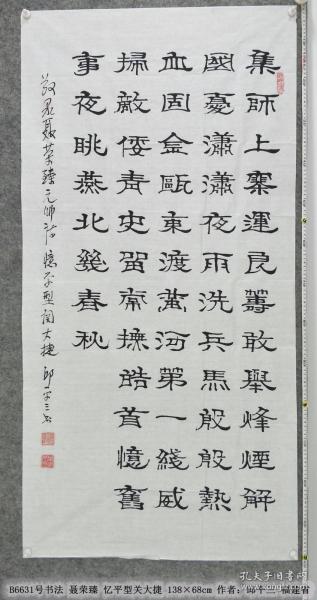 集師上寨運良籌敢舉烽煙解
國憂瀟瀟夜雨洗兵馬殷殷熱
血固金甌東渡黃河第一綫威
掃敵倭青史留常撫皓首憶舊
事夜眺燕北幾春秋
敬录聂荣臻元帅诗憶平型関大捷 邱平三书
B6631号书法 聂荣臻 忆平型关大捷 138×68cm 作者:邱平三 福建省
孔夫子旧书网